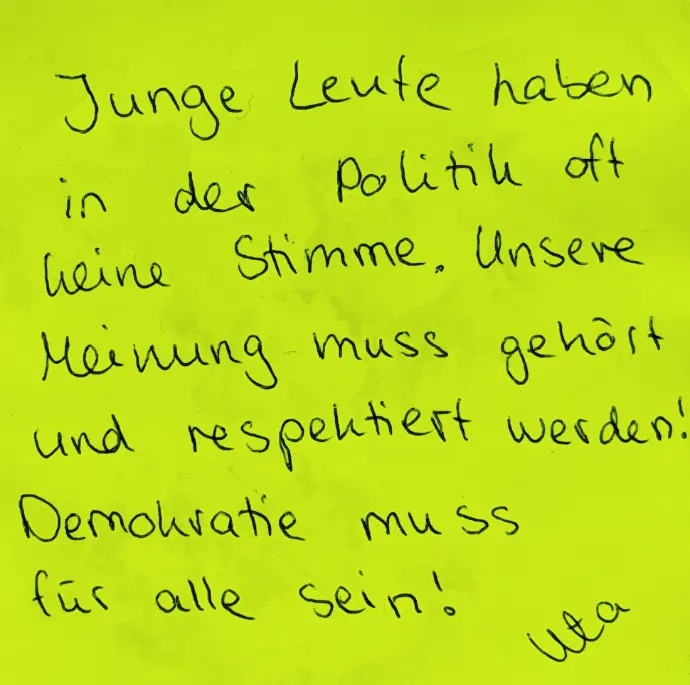 Junge Leute haben
in der Politik oft
keine Stimme. Unsere
Meinung muss gehört
und respektiert werden!
Demokratie muss
für alle sein!
Uta